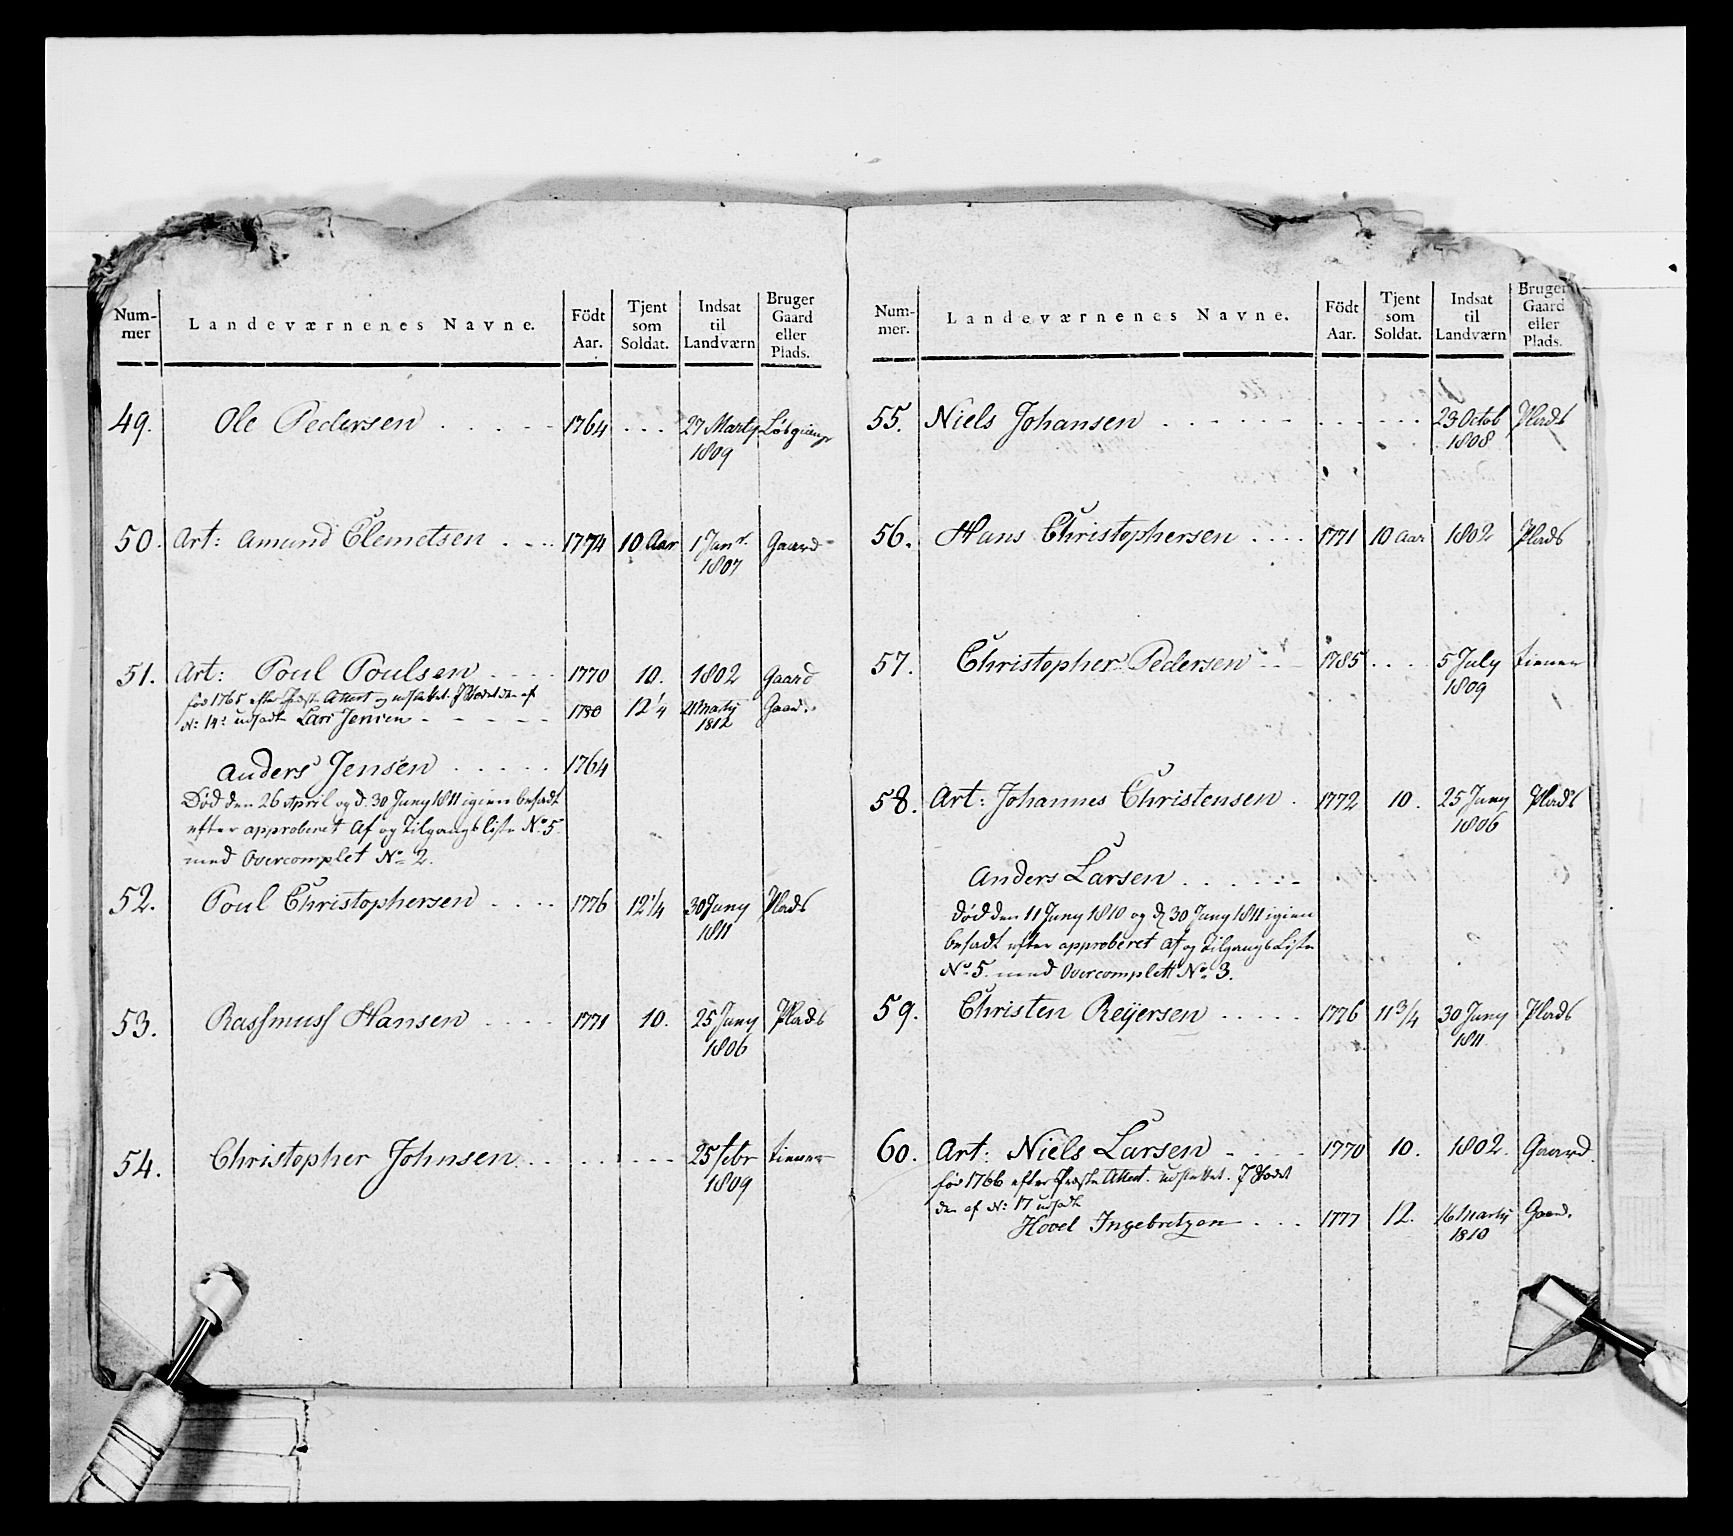 Num-
mer
Landeværnenes Navne.
Födt
Aar.
Tjent
som
Soldat.
Indsat
til
Landværn
Bruger
Gaard
eller
Plads.
49. Ole Pedersen . . . . . 1764 . . . 27 Marty
1809
50. Art: Amund Clemetsen . . . 1774 10 Aar 1 Janr. Gaard
1807
51. Art: Poul Poulsen . . . . 1770 10. 1802 Gaard
fød 1765 efter Præste Attest og udslettet. I Stedet den af
No: 14: udsadte Lars Jensen - - - - - 1780 12 1/4 21 Marty Gaard.
1812
Anders Jensen . . . . . 1764
Død den 26 April og d. 30 Juny 1811 igien besadt
efter approberet Af og Tilgangs liste No. 5.
med Overcomplet No 2.
52. Poul Christophersen . . . . 1776 12 1/4 30 Juny Plads
1811
53. Rassmuss Hansen . . . . 1771 10. 25 Juny Plads
1806
54. Christopher Johnsen . . . . . . . 25 febr tiener
1809
Num-
mer.
Landeværnenes Navne.
Födt
Aar.
Tjent
som
Soldat.
Indsat
til
Landværn
Bruger
Gaard
eller
Plads.
55. Niels Johansen . . . . . . . . . . . 23 Octob Plads
1808
56. Hans Christophersen . . . . 1771 10 Aar 1802 Plads
57. Christopher Pedersen . . . 1785 . . . . 5 July tiener
1809
58. Art: Johannes Christensen . 1772 10. 25 Juny Plads
1806
Anders Larsen . . . . . .
død den 11 Juny 1810 og d 30 Juny 1811 igien
besadt efter approberet Af og Tilgangs Liste
No. 5. med Overcomplett No. 3.
59. Christen Reÿersen . . . . . 1776 11 3/4 30 Juny Plads
1811
60. Art: Niels Larsen . . . . 1770 10. 1802. Gaard.
fød 1766 efter Præste Attest. udslettet. I Stedet
den af No: 17 udsadte
Hovel Ingebretzen . . . 1777 12. 16 Marty Gaard.
1810